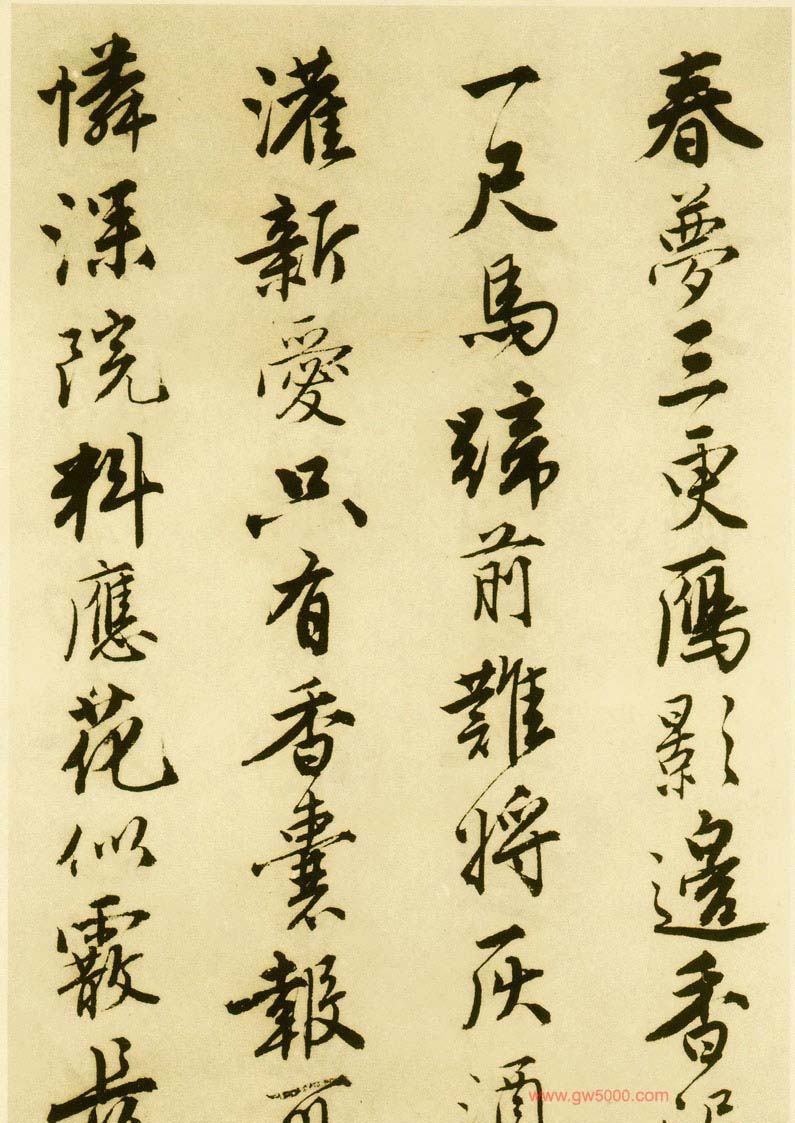 春夢三更雁影邊香泥
一尺馬蹄前難將灰酒
灌新愛只有香囊報可
憐深院料應花似霰長
www.gw5000.com